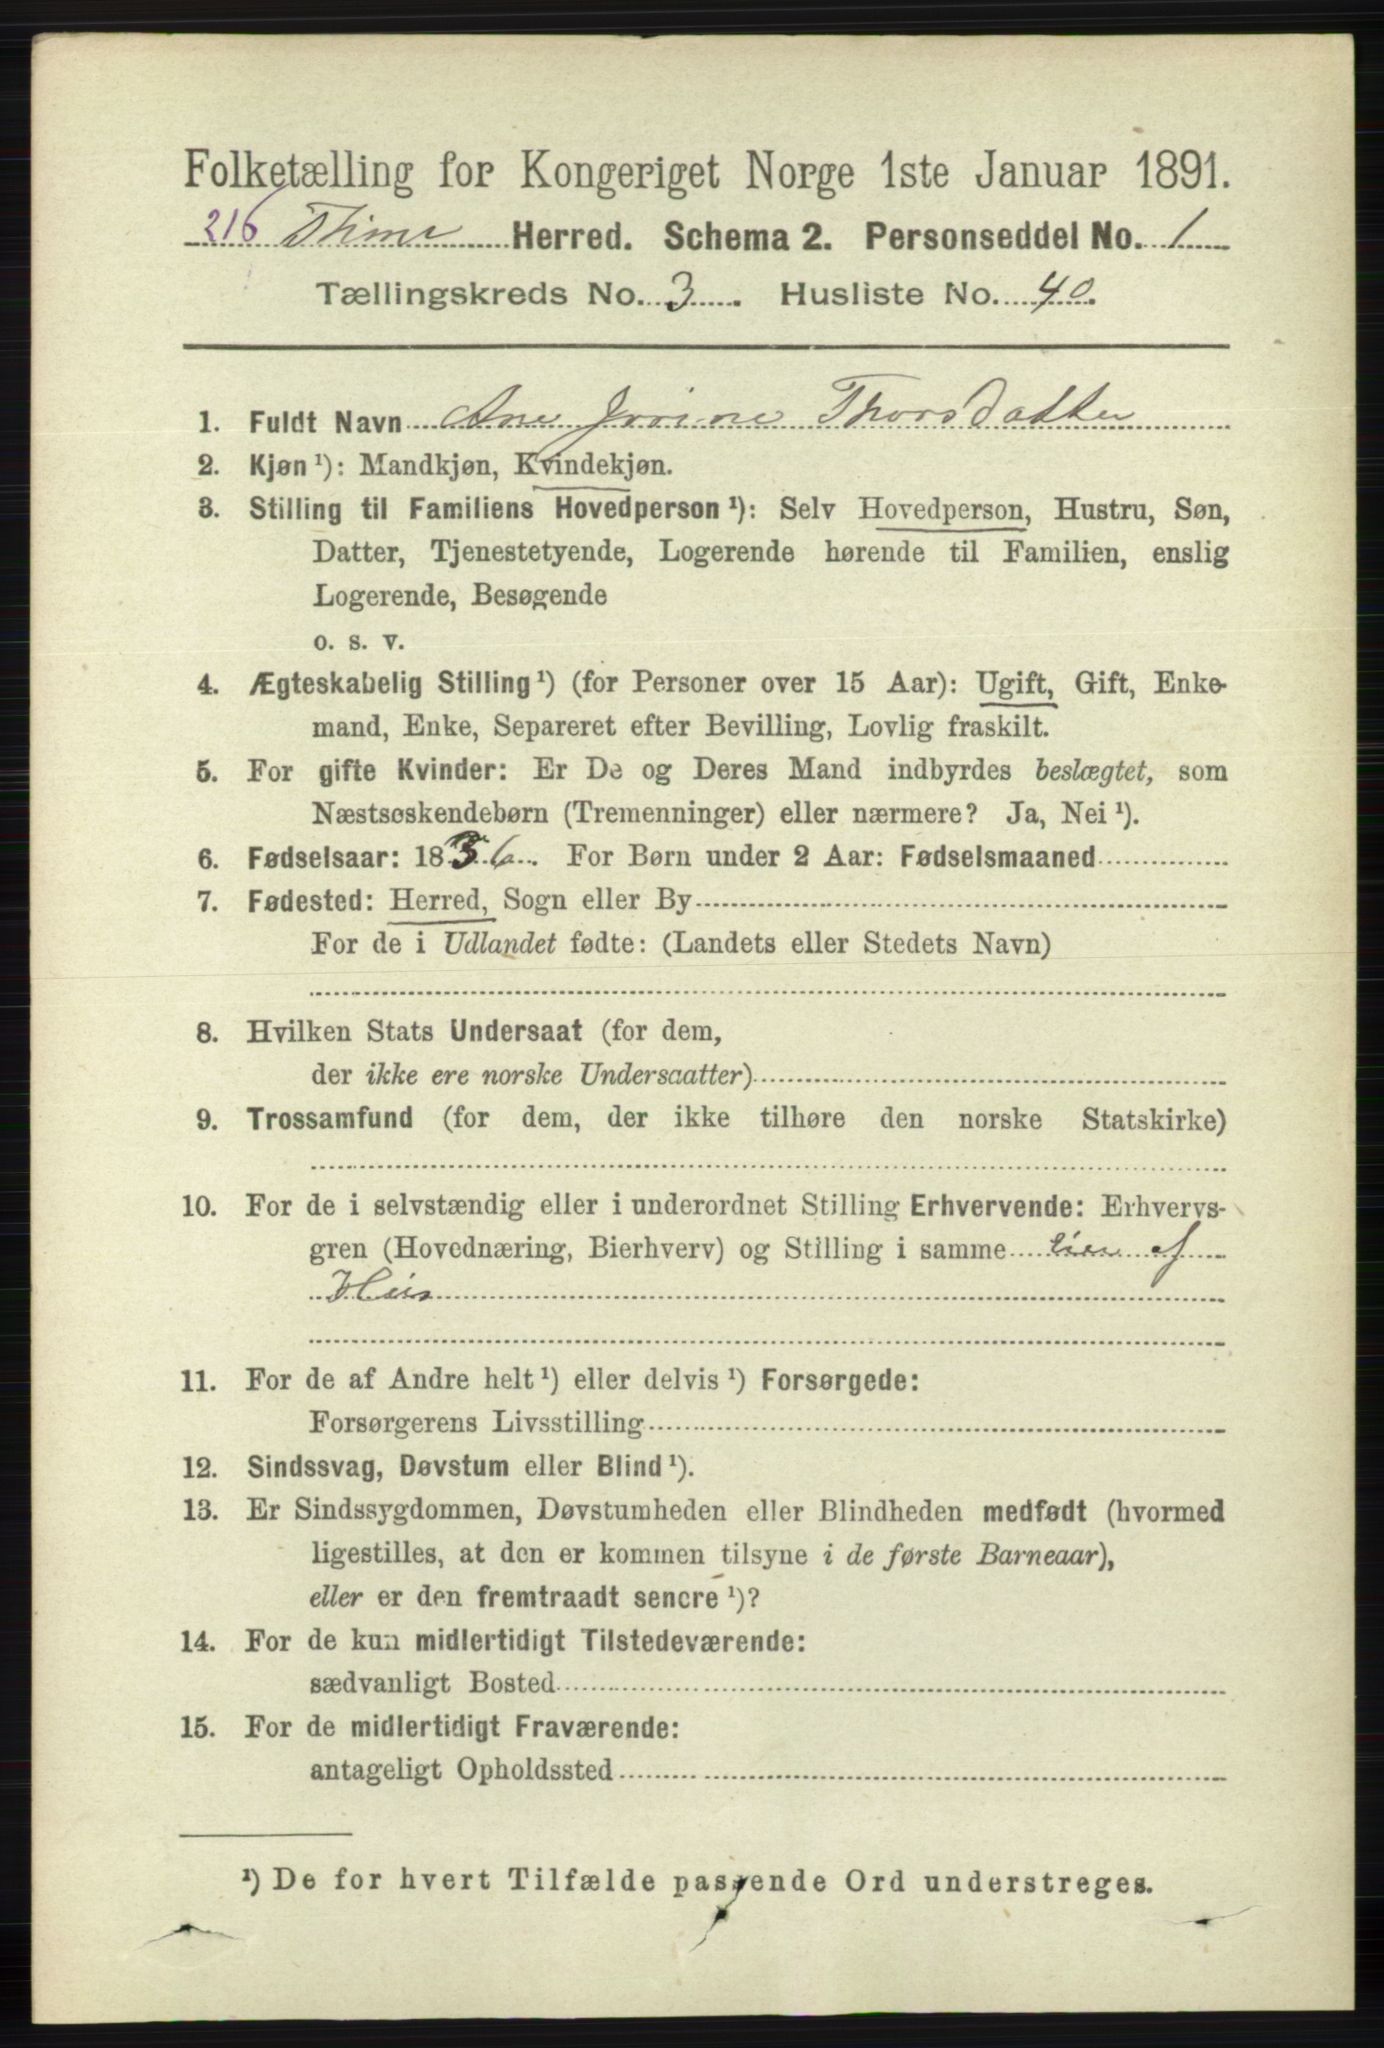 Folketælling for Kongeriget Norge 1ste Januar 1891.
216 Thime Herred. Schema 2. Personseddel No. 1
Tællingskreds No. 3. Husliste No. 40.
1. Fuldt Navn Ane Thorsdatter
2. Kjøn ¹): Mandkjøn, Kvindekjøn.
3. Stilling til Familiens Hovedperson ¹): Selv Hovedperson, Hustru, Søn,
Datter, Tjenestetyende, Logerende hørende til Familien, enslig
Logerende, Besøgende
o. s. v.
4. Ægteskabelig Stilling ¹) (for Personer over 15 Aar): Ugift, Gift, Enke-
mand, Enke, Separeret efter Bevilling, Lovlig fraskilt.
5. For gifte Kvinder: Er De og Deres Mand indbyrdes beslægtet, som
Næstsøskendebørn (Tremenninger) eller nærmere? Ja, Nei ¹).
6. Fødselsaar: 1836. For Børn under 2 Aar: Fødselsmaaned
7. Fødested: Herred, Sogn eller By
For de i Udlandet fødte: (Landets eller Stedets Navn)
8. Hvilken Stats Undersaat (for dem,
der ikke ere norske Undersaatter)
9. Trossamfund (for dem, der ikke tilhøre den norske Statskirke)
10. For de i selvstændig eller i underordnet Stilling Erhvervende: Erhvervs-
gren (Hovednæring, Bierhverv) og Stilling i samme eier af
Hus
11. For de af Andre helt ¹) eller delvis ¹) Forsørgede:
Forsørgerens Livsstilling
12. Sindssvag, Døvstum eller Blind ¹).
13. Er Sindssygdommen, Døvstumheden eller Blindheden medfødt (hvormed
ligestilles, at den er kommen tilsyne i de første Barneaar),
eller er den fremtraadt senere ¹)?
14. For de kun midlertidigt Tilstedeværende:
sædvanligt Bosted
15. For de midlertidigt Fraværende:
antageligt Opholdssted
¹) De for hvert Tilfælde passende Ord understreges.